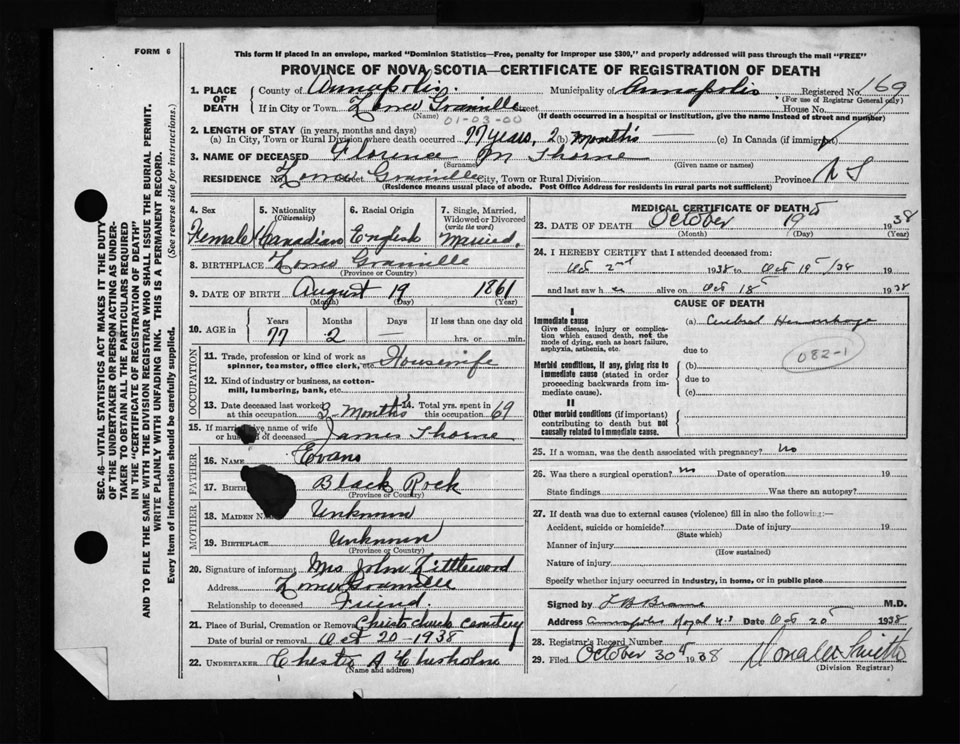 FORM 6
This form if placed in an envelope, marked "Dominion Statistics—Free, penalty for improper use $300," and properly addressed will pass through the mail "FREE"
PROVINCE OF NOVA SCOTIA—CERTIFICATE OF REGISTRATION OF DEATH
1. PLACE OF DEATH
County of Annapolis. Municipality of Annapolis Registered No. 169
* (For use of Registrar General only)
If in City or Town Lower Granville Street House No.
(Name) (If death occurred in a hospital or institution, give the name instead of street and number)
01-03-00
2. LENGTH OF STAY (in years, months and days)
(a) In City, Town or Rural Division where death occurred 77 years, 2 (b) months (c) In Canada (if immigrant)
3. NAME OF DECEASED Florence M Thorne
(Surname) (Given name or names)
RESIDENCE No. Lower Granville Street City, Town or Rural Division Province N S
(Residence means usual place of abode. Post Office Address for residents in rural parts not sufficient)
4. Sex
Female
5. Nationality
(Citizenship)
Canadian
6. Racial Origin
English
7. Single, Married, Widowed or Divorced
(write the word)
Married.
8. BIRTHPLACE Lower Granville
(Province or Country)
9. DATE OF BIRTH August 19 1861
(Month) (Day) (Year)
10. AGE in
Years Months Days If less than one day old
77 2 hrs. or min.
OCCUPATION
11. Trade, profession or kind of work as spinner, teamster, office clerk, etc. Housewife
12. Kind of industry or business, as cotton-mill, lumbering, bank, etc.
13. Date deceased last worked at this occupation 3-months
14. Total yrs. spent in this occupation 69
15. If married give name of wife or of deceased James Thorne
FATHER
16. NAME Evans
17. Black Rock
(Province or Country)
MOTHER
18. MAIDEN Unknown
19. BIRTHPLACE Unknown
(Province or Country)
20. Signature of informant Mrs John Littlewood
Address Lower Granville
Relationship to deceased Friend.
21. Place of Burial, Cremation or Removal Christ church cemetery
Date of burial or removal Oct 20-1938
22. UNDERTAKER Chester A Chisholm
(Name and address)
MEDICAL CERTIFICATE OF DEATH
23. DATE OF DEATH October 19th 1938
(Month) (Day) (Year)
24. I HEREBY CERTIFY that I attended deceased from:
Oct 2nd 1938 to Oct 19/38 19
and last saw h er alive on Oct 18 1938
CAUSE OF DEATH
I
Immediate cause
Give disease, injury or complication which caused death, not the mode of dying, such as heart failure, asphyxia, asthenia, etc.
(a) Cerebral Hemorrhage
082-1
due to
Morbid conditions, if any, giving rise to immediate cause (stated in order proceeding backwards from immediate cause).
(b)
due to
(c)
II
Other morbid conditions (if important) contributing to death but not causally related to immediate cause.
25. If a woman, was the death associated with pregnancy? No
26. Was there a surgical operation? No Date of operation 19
State findings Was there an autopsy?
27. If death was due to external causes (violence) fill in also the following:—
Accident, suicide or homicide? Date of injury 19
(State which)
Manner of injury
(How sustained)
Nature of injury
Specify whether injury occurred in industry, in home, or in public place
Signed by M.D.
Address Annapolis Royal N.S Date Oct 20 1938
28. Registrar's Record Number
29. Filed October 30 1938 Donald Smith
(Division Registrar)
SEC. 46—VITAL STATISTICS ACT MAKES IT THE DUTY
OF THE UNDERTAKER OR PERSON ACTING AS UNDER-
TAKER TO OBTAIN ALL THE PARTICULARS REQUIRED
IN THE "CERTIFICATE OF REGISTRATION OF DEATH"
AND TO FILE THE SAME WITH THE DIVISION REGISTRAR WHO SHALL ISSUE THE BURIAL PERMIT.
WRITE PLAINLY WITH UNFADING INK. THIS IS A PERMANENT RECORD.
Every item of information should be carefully supplied. (See reverse side for instructions.)